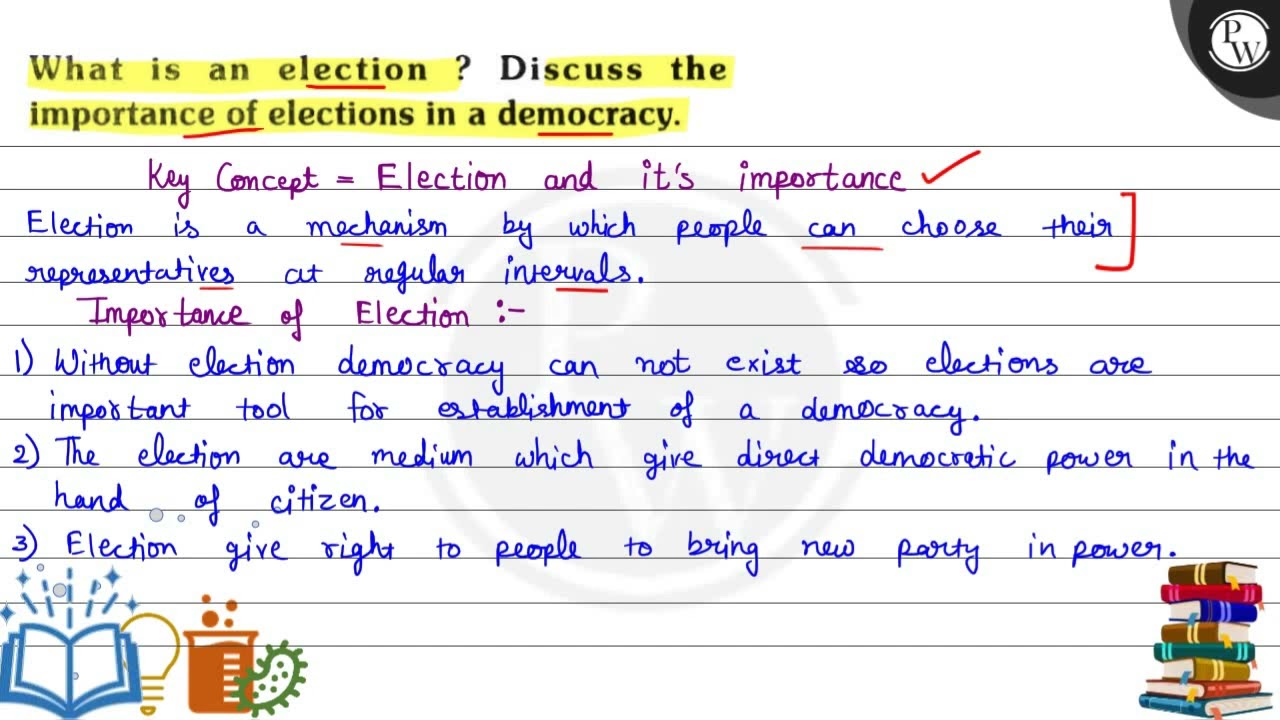 What is an election ? Discuss the
importance of elections in a democracy.
Key Concept = Election and it's importance
Election is a mechanism by which people can choose their
representatives at regular intervals.
Importance of Election :-
1) Without election democracy can not exist so elections are
important tool for establishment of a democracy.
2) The election are medium which give direct democratic power in the
hand of citizen.
3) Election give right to people to bring new party in power.
PW
PW